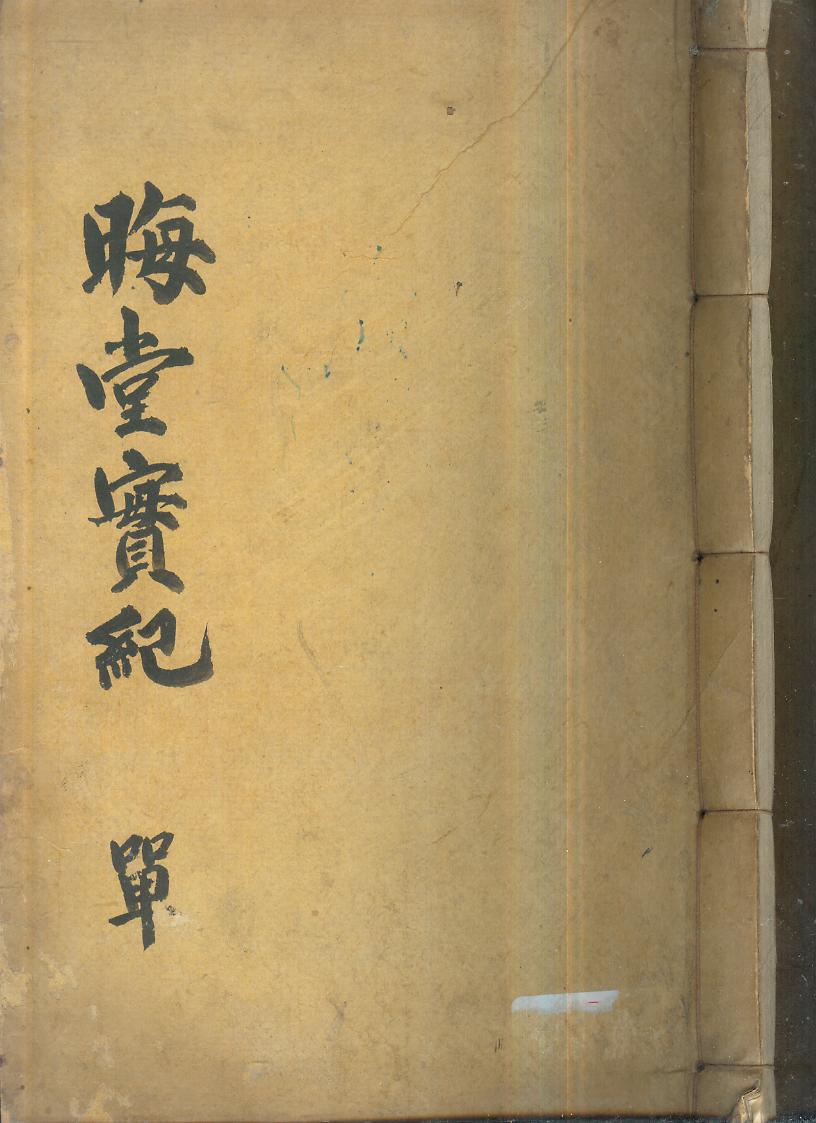 晦堂實紀 單